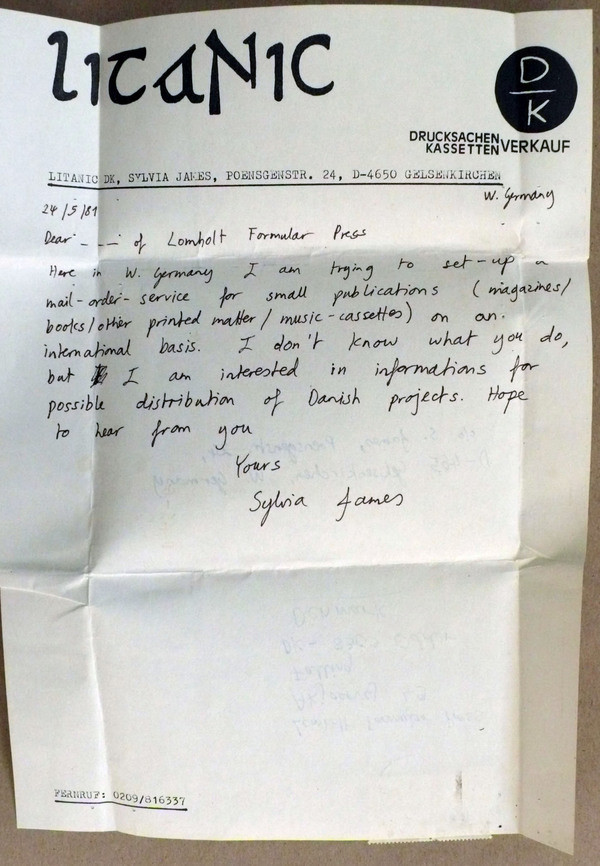 LITANIC
D
K
DRUCKSACHEN
KASSETTENVERKAUF
LITANIC DK, SYLVIA JAMES, POENSGENSTR. 24, D-4650 GELSENKIRCHEN
W. Germany
24/5/81
Dear _ _ _ of Lomholt Formular Press
Here in W. Germany I am trying to set-up a
mail-order-service for small publications (magazines/
books/other printed matter/music-cassettes) on an
international basis. I don't know what you do,
but I am interested in informations for
possible distribution of Danish projects. Hope
to hear from you
Yours
Sylvia James
FERNRUF: 0209/816337